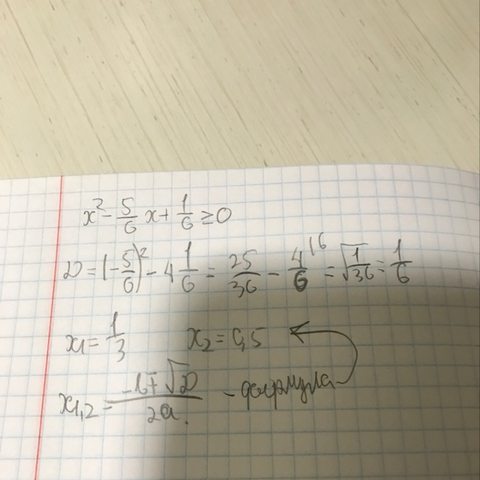 x² - 5/6 x + 1/6 ≥ 0
D = (-5/6)² - 4 1/6 = 25/36 - 4/6 ^16 = √1/36 = 1/6
x1 = 1/3 x2 = 0,5
x1,2 = -b∓√D / 2a. - формула